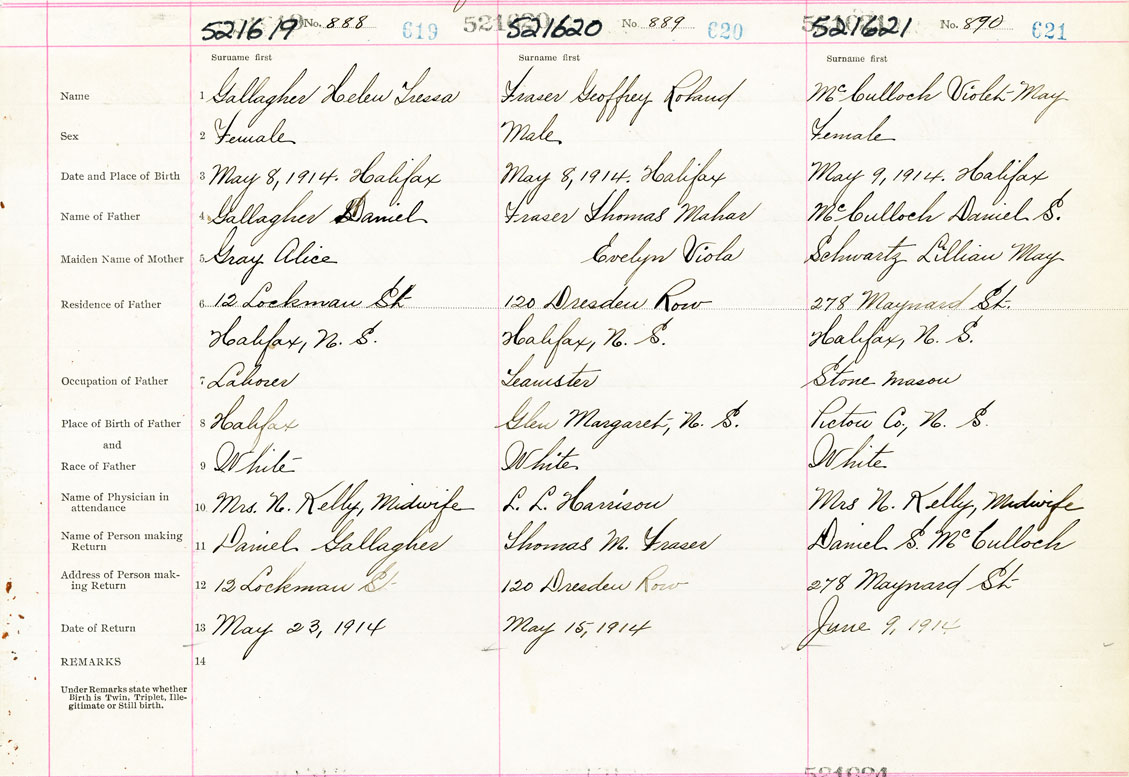 521619 No. 888 619 521620 No. 889 620 521621 No. 890 621
Surname first Surname first Surname first
Name 1 Gallagher Helen Tressa Fraser Geoffrey Roland McCulloch Violet May
Sex 2 Female Male Female
Date and Place of Birth 3 May 8, 1914. Halifax May 8, 1914. Halifax May 9, 1914. Halifax
Name of Father 4 Gallagher Daniel Fraser Thomas Mahar McCulloch Daniel S.
Maiden Name of Mother 5 Gray Alice Evelyn Viola Schwartz Lillian May
Residence of Father 6 12 Lockman St. 120 Dresden Row 278 Maynard St.
Halifax, N. S. Halifax, N. S. Halifax, N. S.
Occupation of Father 7 Laborer Teamster Stone mason
Place of Birth of Father 8 Halifax Glen Margaret, N. S. Pictou Co, N. S.
and
Race of Father 9 White White White
Name of Physician in
attendance 10 Mrs. N. Kelly, Midwife L. L. Harrison Mrs N. Kelly, Midwife
Name of Person making
Return 11 Daniel Gallagher Thomas M. Fraser Daniel S. McCulloch
Address of Person mak-
ing Return 12 12 Lockman St 120 Dresden Row 278 Maynard St
Date of Return 13 May 23, 1914 May 15, 1914 June 9, 1914
REMARKS 14
Under Remarks state whether
Birth is Twin, Triplet, Ille-
gitimate or Still birth.